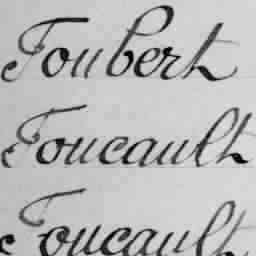 Foubert
Foucault
Foucault